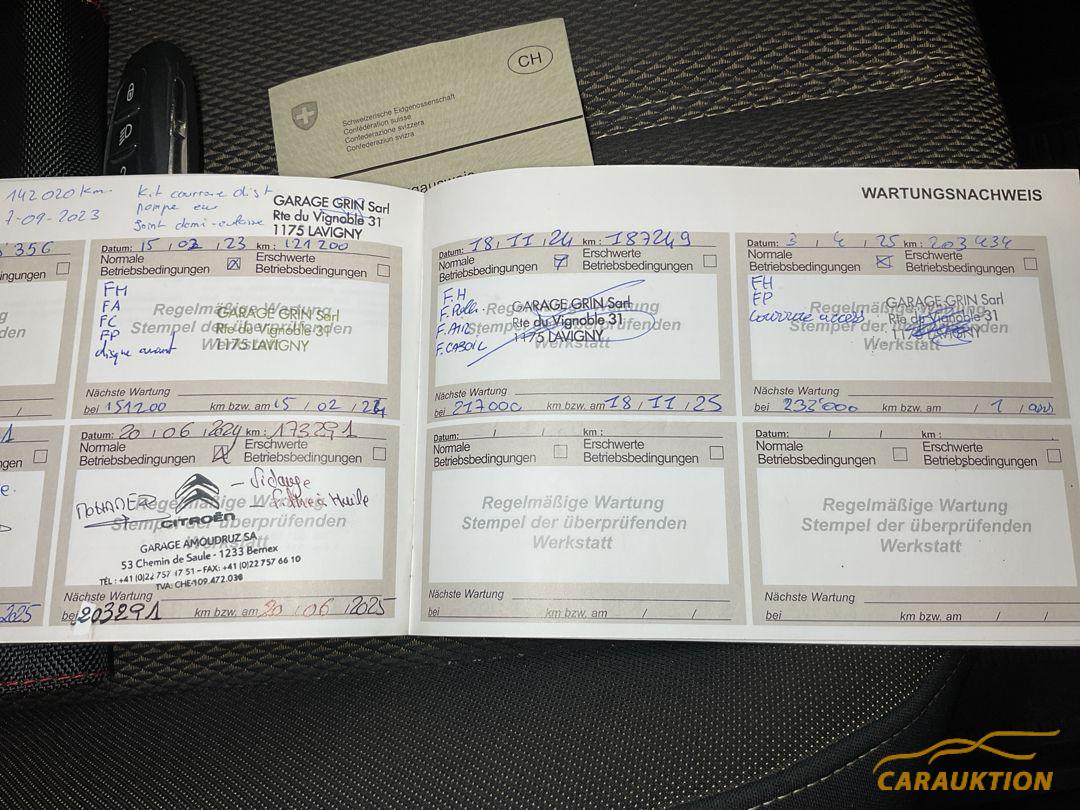 CH
Schweizerische Eidgenossenschaft
Confédération suisse
Confederazione svizzera
Confederaziun svizra
WARTUNGSNACHWEIS
142020 km
7-09-2023
Kit courroie dist
pompe eau
joint demi-culasse
GARAGE GRIN Sarl
Rte du Vignoble 31
1175 LAVIGNY
356
ingungen
Datum: 15 / 02 / 23 km : 121200
Normale
Betriebsbedingungen
Erschwerte
Betriebsbedingungen
FH
FA
FC
FP
disque avant
Regelmäßige Wartung
Stempel der überprüfenden
Werkstatt
GARAGE GRIN Sarl
Rte du Vignoble 31
1175 LAVIGNY
Nächste Wartung
bei 151200 km bzw. am 15 / 02 / 24
Datum: 20 / 06 / 2024 km : 173291
Normale
Betriebsbedingungen
Erschwerte
Betriebsbedingungen
- Vidange
- Filtre à Huile
Regelmäßige Wartung
Stempel der überprüfenden
Werkstatt
CITROËN
GARAGE AMOUDRUZ SA
53 Chemin de Saule - 1233 Bernex
TÉL : +41 (0)22 757 17 51 – FAX: +41 (0)22 757 66 10
TVA: CHE-109.472.036
Nächste Wartung
bei 203291 km bzw. am 20 / 06 / 2025
2025
Datum: 18 / 11 / 24 km : 187249
Normale
Betriebsbedingungen
Erschwerte
Betriebsbedingungen
F.H
F.Poll.
F.Air
Regelmäßige Wartung
Stempel der überprüfenden
Werkstatt
GARAGE GRIN Sarl
Rte du Vignoble 31
1175 LAVIGNY
Nächste Wartung
bei 217000 km bzw. am 18 / 11 / 25
Datum: 3 / 4 / 25 km : 203434
Normale
Betriebsbedingungen
Erschwerte
Betriebsbedingungen
FH
FP
Courroie access
Regelmäßige Wartung
Stempel der überprüfenden
Werkstatt
GARAGE GRIN Sarl
Rte du Vignoble 31
1175 LAVIGNY
Nächste Wartung
bei 233000 km bzw. am / 1 / ans
Datum: / / km :
Normale
Betriebsbedingungen
Erschwerte
Betriebsbedingungen
Regelmäßige Wartung
Stempel der überprüfenden
Werkstatt
Nächste Wartung
bei km bzw. am / /
Datum: / / km :
Normale
Betriebsbedingungen
Erschwerte
Betriebsbedingungen
Regelmäßige Wartung
Stempel der überprüfenden
Werkstatt
Nächste Wartung
bei km bzw. am / /
CARAUKTION